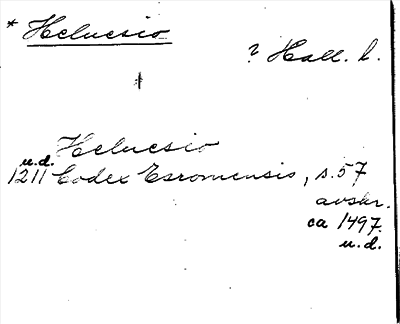 * Helnesio
? Hall. l.
Helnesio
u.d.
1211 Codex Esromensis, s. 57
avskr.
ca 1497.
u.d.